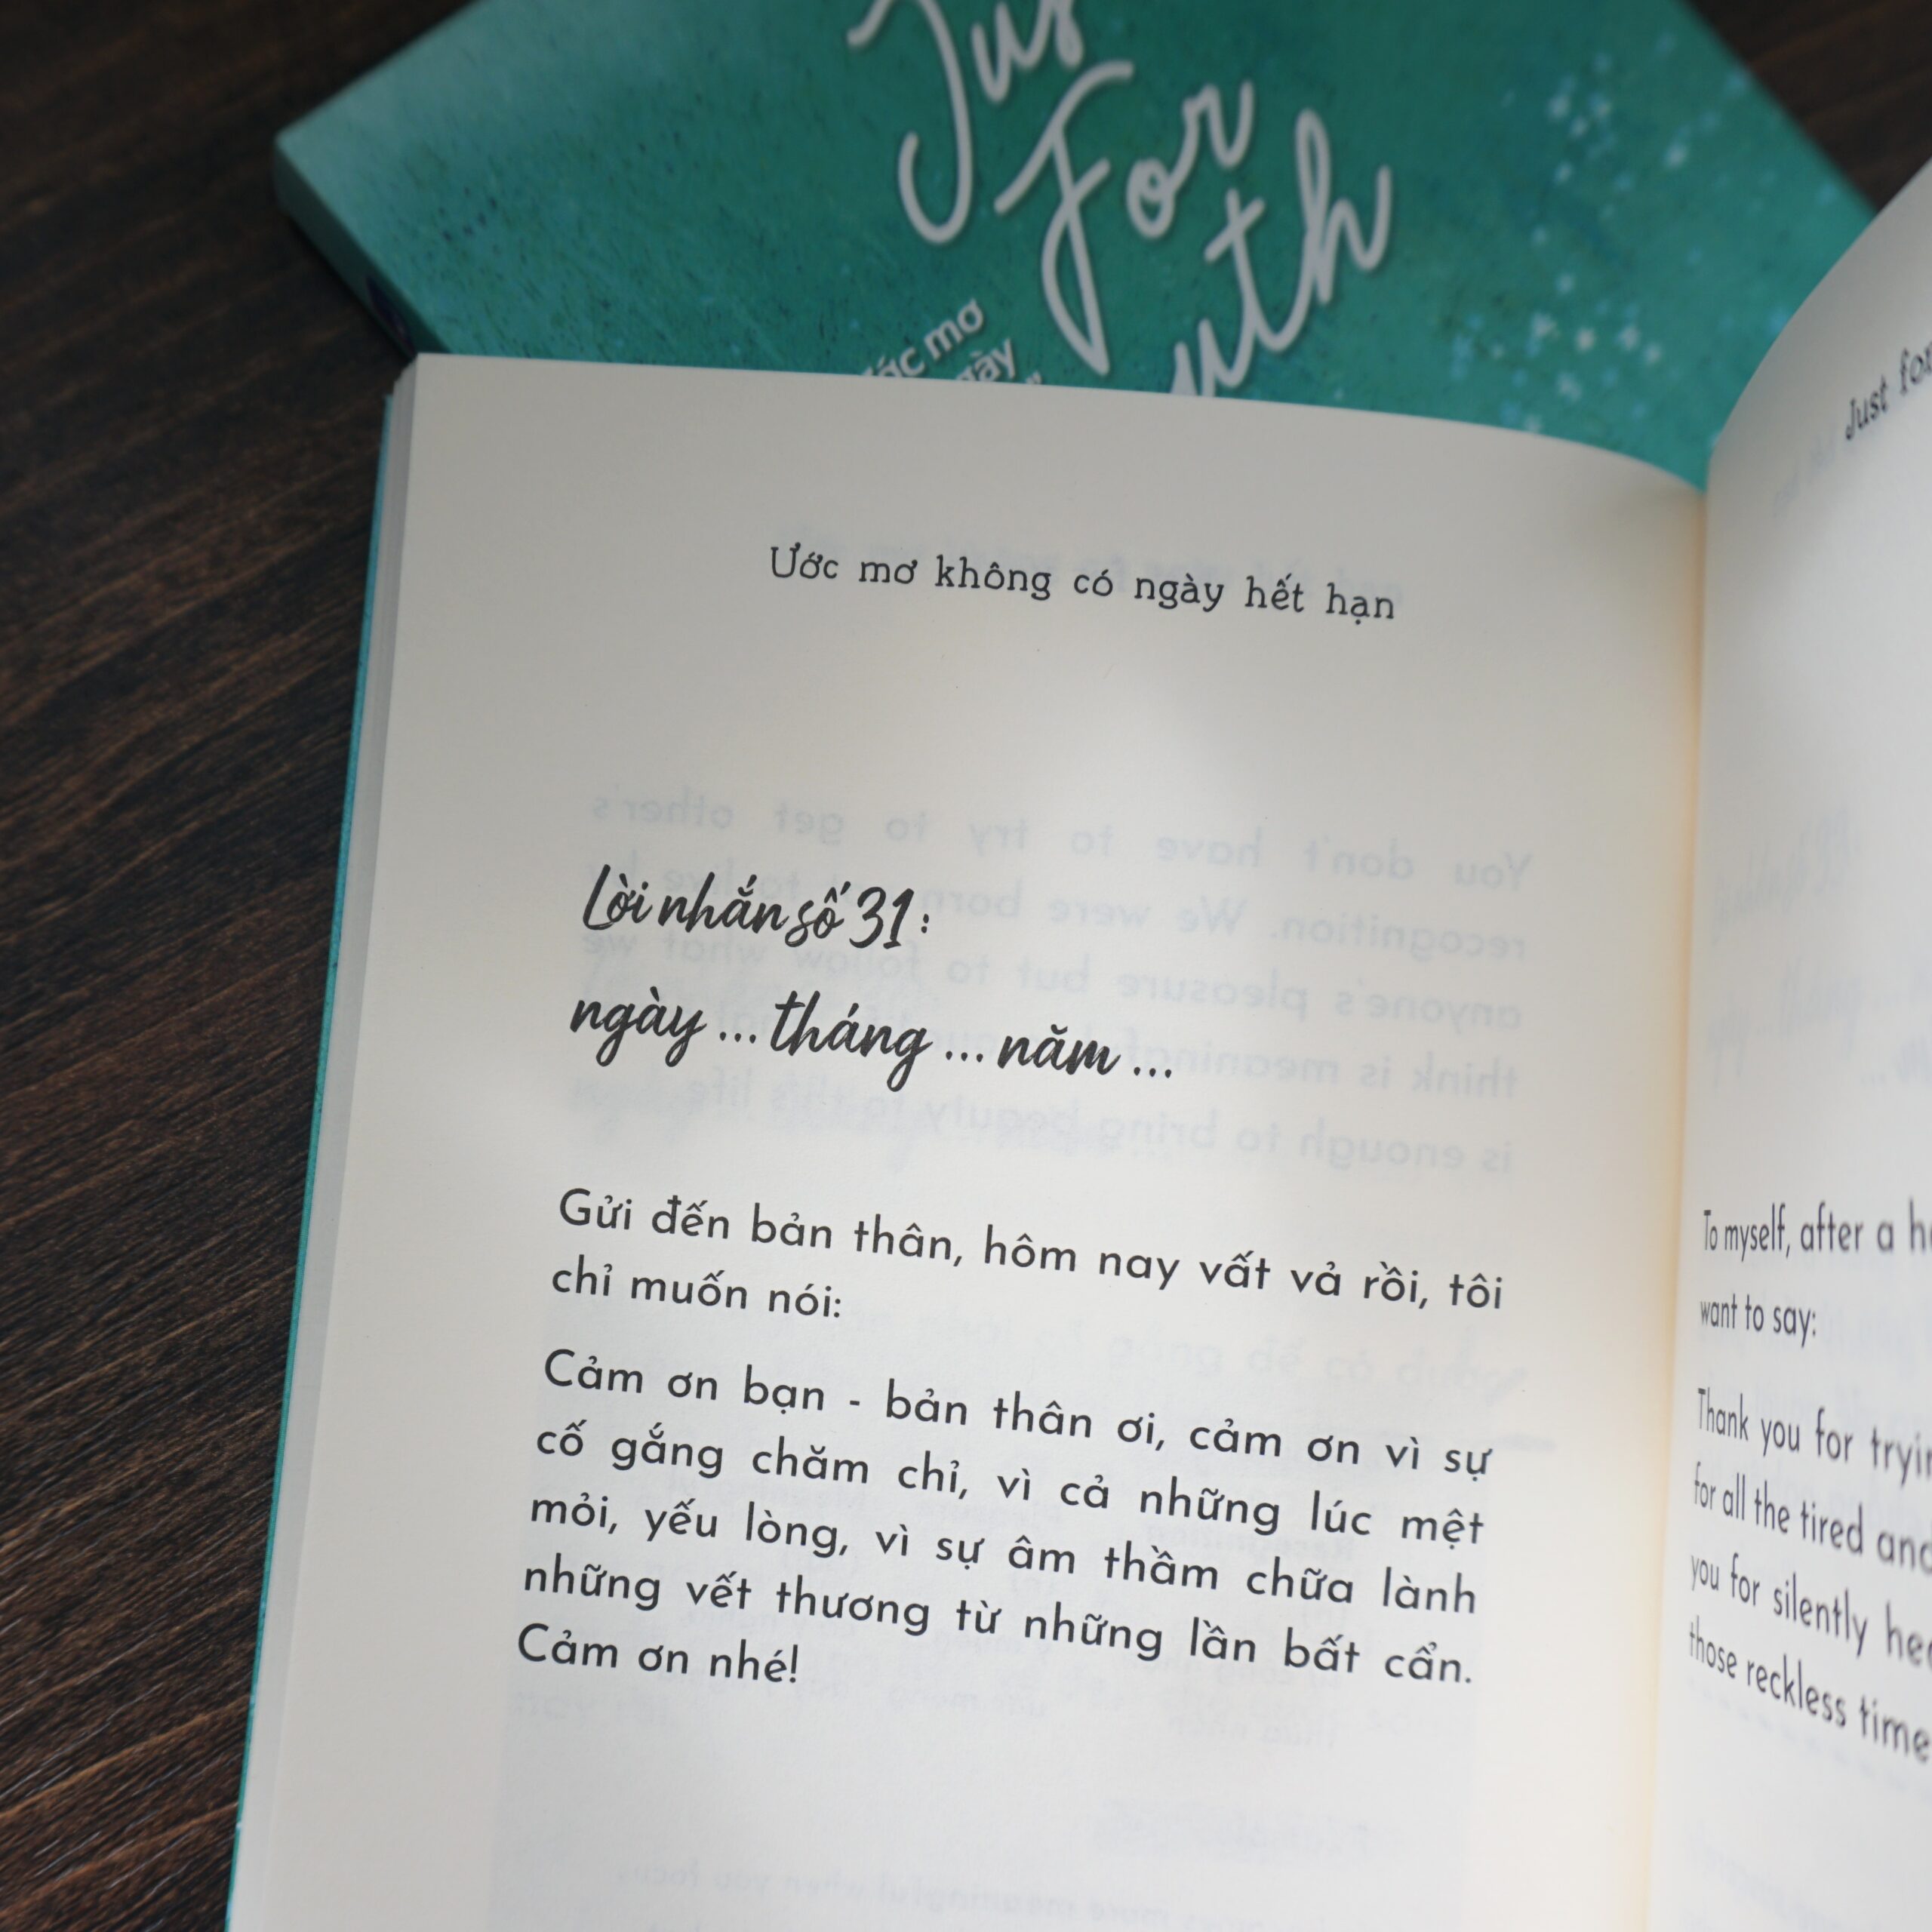 Just
For
uth
ước mơ
ngày
Ước mơ không có ngày hết hạn
Lời nhắn số 31:
ngày ... tháng ... năm ...
Gửi đến bản thân, hôm nay vất vả rồi, tôi
chỉ muốn nói:
Cảm ơn bạn - bản thân ơi, cảm ơn vì sự
cố gắng chăm chỉ, vì cả những lúc mệt
mỏi, yếu lòng, vì sự âm thầm chữa lành
những vết thương từ những lần bất cẩn.
Cảm ơn nhé!
Just for
To myself, after a
want to say:
Thank you for
for all the tired and
you for silently
those reckless time